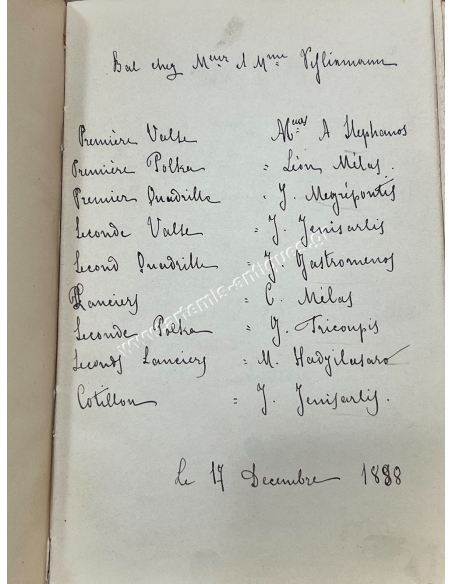 Bal chez Meur et Mme Schliemann
Première Valse Meur A Stephanos
Première Polka = Léon Mélas.
Premier Quadrille = J. Negrépontis
Seconde Valse = J. Jenisarlis
Second Quadrille = J. Gastromenos
Lanciers = C. Mélas
Seconde Polka = J. Tricoupis
Seconds Lanciers = M. Hadjilasaro
Cotillon = J. Jenisarlis.
Le 17 Decembre 1888
www.artemis-antiques.gr